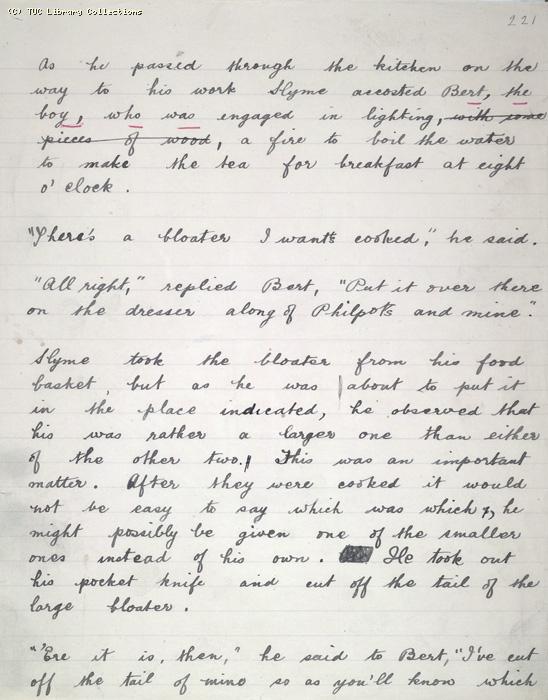 (C) TUC Library Collections
221
As he passed through the kitchen on the
way to his work Slyme accosted Bert, the
boy, who was engaged in lighting, with some
pieces of wood, a fire to boil the water
to make the tea for breakfast at eight
o'clock.
"There's a bloater I want's cooked," he said.
"All right," replied Bert, "Put it over there
on the dresser along of Philpot's and mine".
Slyme took the bloater from his food
basket, but as he was about to put it
in the place indicated, he observed that
his was rather a larger one than either
of the other two. This was an important
matter. After they were cooked it would
not be easy to say which was which, he
might possibly be given one of the smaller
ones instead of his own. He took out
his pocket knife and cut off the tail of the
large bloater.
"'Ere it is, then," he said to Bert, "I've cut
off the tail of mine so as you'll know which